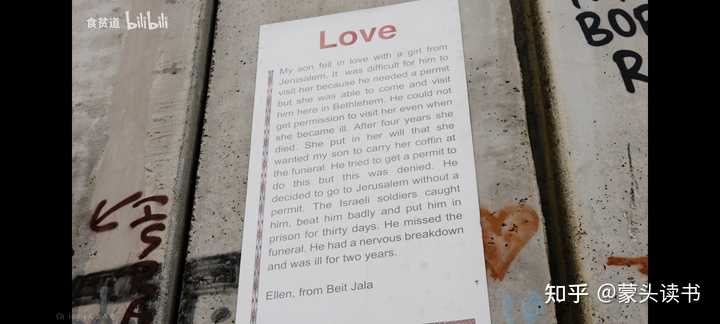 食贫道 bilibili
BOR
R
Love
My son fell in love with a girl from
Jerusalem. It was difficult for him to
visit her because he needed a permit
but she was able to come and visit
him here in Bethlehem. He could not
get permission to visit her even when
she became ill. After four years she
died. She put in her will that she
wanted my son to carry her coffin at
the funeral. He tried to get a permit to
do this but this was denied. He
decided to go to Jerusalem without a
permit. The Israeli soldiers caught
him, beat him badly and put him in
prison for thirty days. He missed the
funeral. He had a nervous breakdown
and was ill for two years.
Ellen, from Beit Jala
ISRA
知乎 @蒙头读书